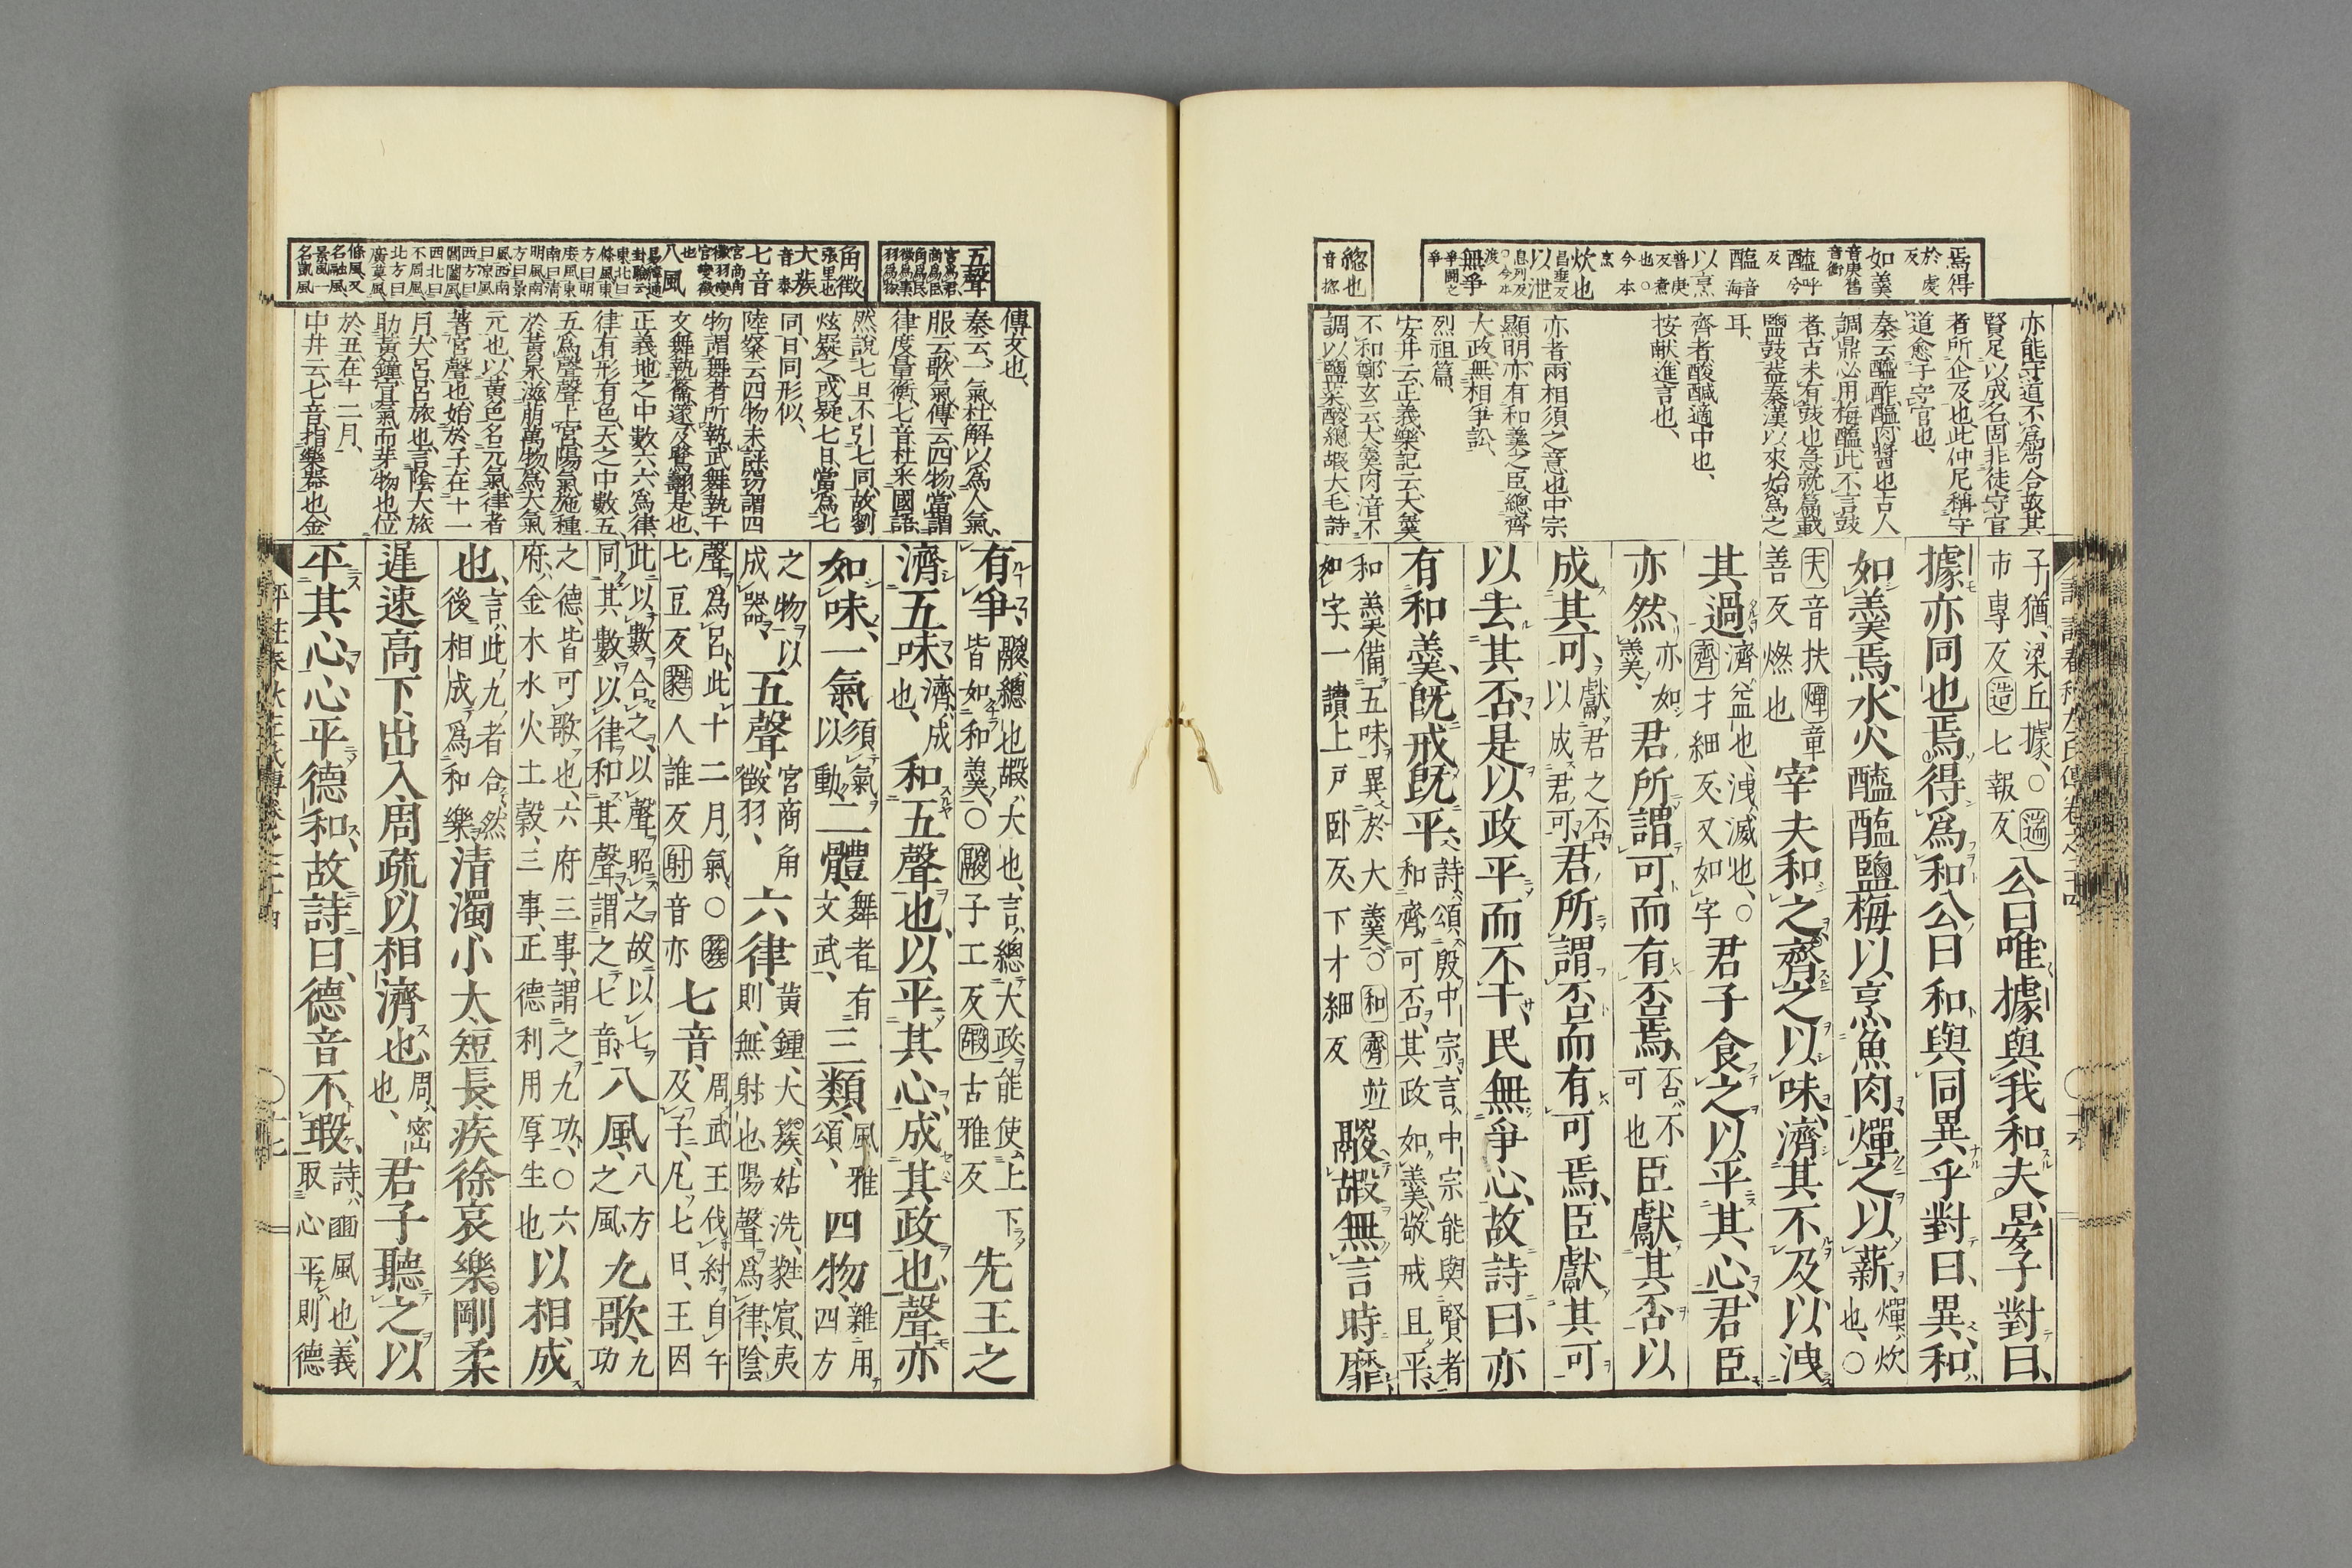 焉得
於虔反
如羹
音庚舊音衡
醯呼兮反
醢音海
以烹
普庚反煮也○今本烹
炊也
昌垂反
以泄
息列反○今本渫
無爭
爭鬪之爭
總也
音揔
亦能守道不爲苟合故其
賢足以成名固非徒守官
者所企及也此仲尼稱守
道愈子守官也、
秦云醯酢醢肉醬也古人
調鼎必用梅醢此不言鼓
者古未有豉也急就篇載
鹽豉葢秦漢以來始爲之
耳、
齊者酸醎適中也、
按献進言也、
亦者兩相須之意也中宗
顯明亦有和羹之臣總齊
大政無相爭訟、
烈祖篇、
安井云正義樂記云大羹
不和鄭玄云大羹肉湆不
調以鹽菜醙總嘏大毛詩
子猶、梁丘據、○遄市專反造七報反公曰唯據與我和夫、晏子對曰、
據亦同也焉得爲和公曰和與同異乎對曰、異、和
如羹焉、水火醯醢鹽梅以烹魚肉、燀之以薪、燀炊也、○
天音扶燀章善反燃也宰夫和之齊之以味、濟其不及以洩
其過、濟益也、洩減也、○齊才細反又如字君子食之以平其心、君臣
亦然、亦如羹、君所謂可而有否焉、否不可也臣獻其否以
成其可、獻君之否、以成君可君所謂否而有可焉、臣獻其可
以去其否、是以政平而不干、民無爭心、故詩曰、亦
有和羹、旣戒旣平、詩頌殷中宗言、中宗能與賢者和齊可否、其政如羹、敬戒且平、
和羹備五味異於大羹、○和齊並如字、一讀上戸卧反、下才細反鬷嘏無言時靡
五聲
宮爲君、商爲臣、角爲民、徵爲事、羽爲物
角徵
張里也
大簇
音泰
七音
宮商角徵羽變宮變徵也
八風
易緯通卦驗云東北曰條風東方曰明庶風東南曰清明風南方曰景風西南曰凉風西方曰閶闔風西北曰不周風北方曰廣莫風條風又名融風景風一名凱風
傳文也、
秦云、一氣、杜解以爲人氣、
服云歌氣、傳云、四物、當謂
律度量衡、七音、杜釆國語
然說七旦、不引七同、故劉
炫疑之、或疑七日、當爲七
同、日同形似、
陸粲云四物未詳、切謂四
物謂舞者所執、武舞執干
文舞執籥濯、及鷺翿是也、
正義地之中數六六爲律、
律有形有色、天之中數五、
五爲聲、聲上宮、陽氣施種
於黃泉、滋萠萬物、爲大氣
元也、以黃色名元氣、律者
著宮聲也、始於子在十一
月、大呂呂旅也、言陰大旅
助黃鐘宣氣而芽物也、位
於丑在十二月、
中井云、七音指樂器也、金
有爭、鬷總也、嘏大也、言總大政能使上下皆如和羹、○鬷子工反嘏古雅反先王之
濟五味、濟成也、和五聲也、以平其心、成其政也、聲亦
如味、一氣、須氣以動二體、舞者有文武、三類、風雅頌、四物、雜用四方
之物以成器、五聲、宮商角徵羽、六律、黃鍾、大簇、姑洗、蕤賓、夷則、無射也、陽聲爲律、陰
聲爲呂、此十二月氣、○簇七豆反蕤人誰反射音亦七音、周武王伐紂、自午及子、凡七日、王因
此以數合之、以聲昭之、故以七同其數、以律和其聲、謂之七音、八風、八方之風、九歌、九功
之德、皆可歌也、六府三事、謂之九功、○六府、金木水火土穀、三事、正德利用厚生也以相成
也、言此九者合、然後相成爲和樂、清濁小大短長疾徐哀樂剛柔
遲速高下、出入周疏、以相濟也、周密也、君子聽之以
平其心、心平德和、故詩曰、德音不瑕、詩豳風也、義取心平則德